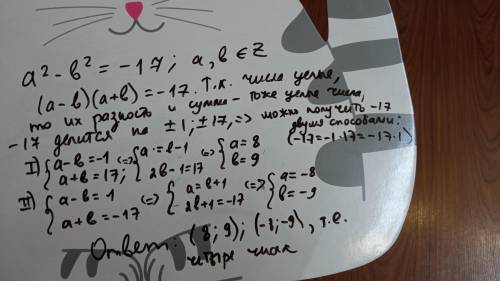 a² - b² = -17; a, b ∈ Z
(a-b)(a+b) = -17. Т.к. числа целые,
то их разность и сумма - тоже целые числа,
-17 делится на ±1; ±17, => можно получить -17
двумя способами:
(-17 = -1·17 = -17·1)
I) { a-b=-1 a+b=17; <=> { a=b-1 2b-1=17 <=> { a=8 b=9
II) { a-b=1 a+b=-17 <=> { a=b+1 2b+1=-17 <=> { a=-8 b=-9
Ответ: (8; 9); (-8; -9), т.е.
четыре